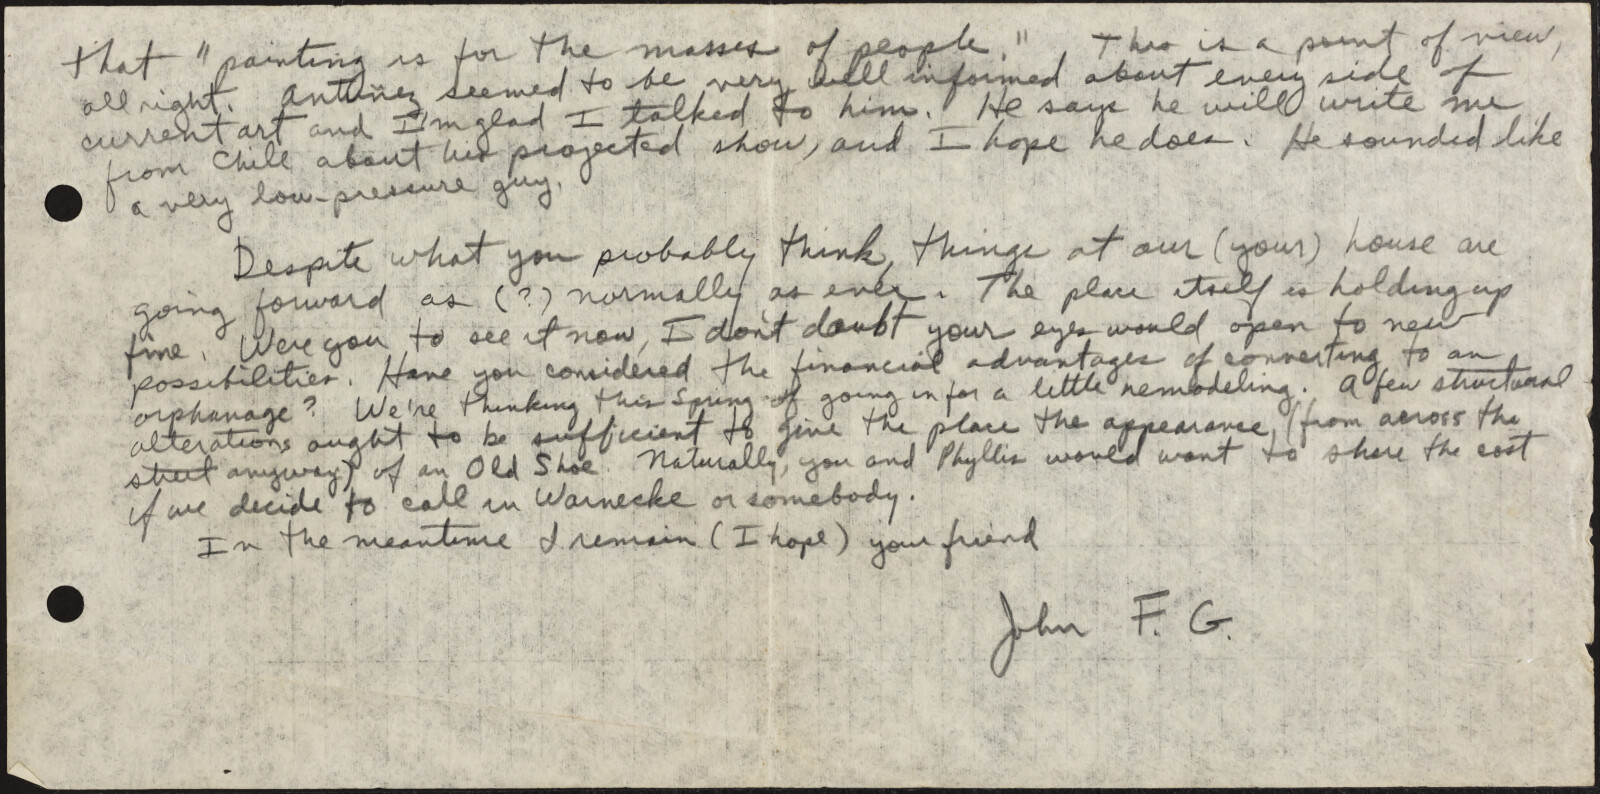 that "painting is for the masses of people." This is a point of view,
all right. Antúñez seemed to be very well informed about every side of
current art and I'm glad I talked to him. He says he will write me
from Chile about his projected show, and I hope he does. He sounded like
a very low-pressure guy.
Despite what you probably think, things at our (your) house are
going forward as (?) normally as ever. The place itself is holding up
fine. Were you to see it now, I don't doubt your eyes would open to new
possibilities. Have you considered the financial advantages of converting to an
orphanage? We're thinking this Spring of going in for a little remodeling. A few structural
alterations ought to be sufficient to give the place the appearance (from across the
street anyway) of an Old Shoe. Naturally, you and Phyllis would want to share the cost
if we decide to call in Warnecke or somebody.
In the meantime I remain (I hope) your friend
John F. G.